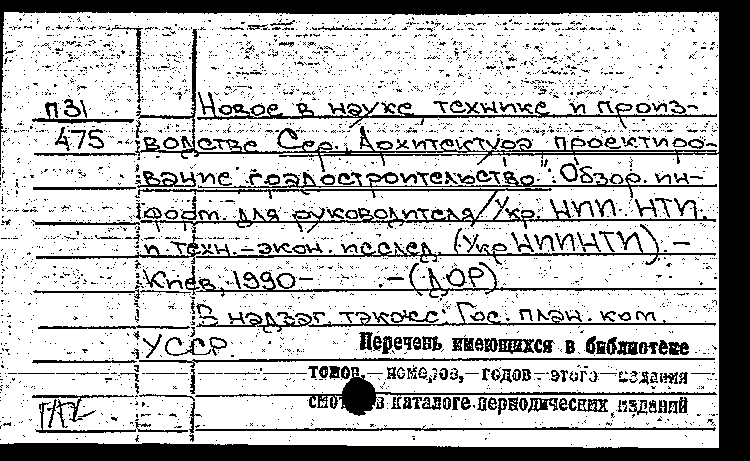 П31 Новое в науке, технике и произ-
475 водстве Сер. Архитектура, проектиро-
вание, градостроительство": Обзор. ин-
форм. для руководителя/Укр. НИИ НТИ
и техн.-экон. исслед. (УкрНИИНТИ). -
Киев, 1990- .-(ДОР)
В надзаг. также: Гос. план. ком.
УССР. Перечень имеющихся в библиотеке
томов, номеров, годов этого издания
смотри в каталоге периодических изданий